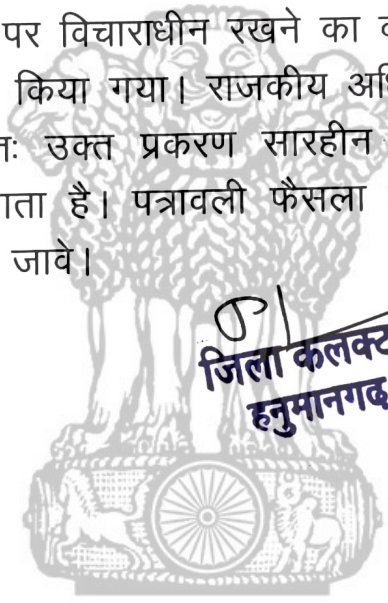 पर विचाराधीन रखने का
किया गया। राजकीय
उक्त प्रकरण सारहीन
है। पत्रावली फैसला
जावे।
जिला कलक्ट
हनुमानगढ